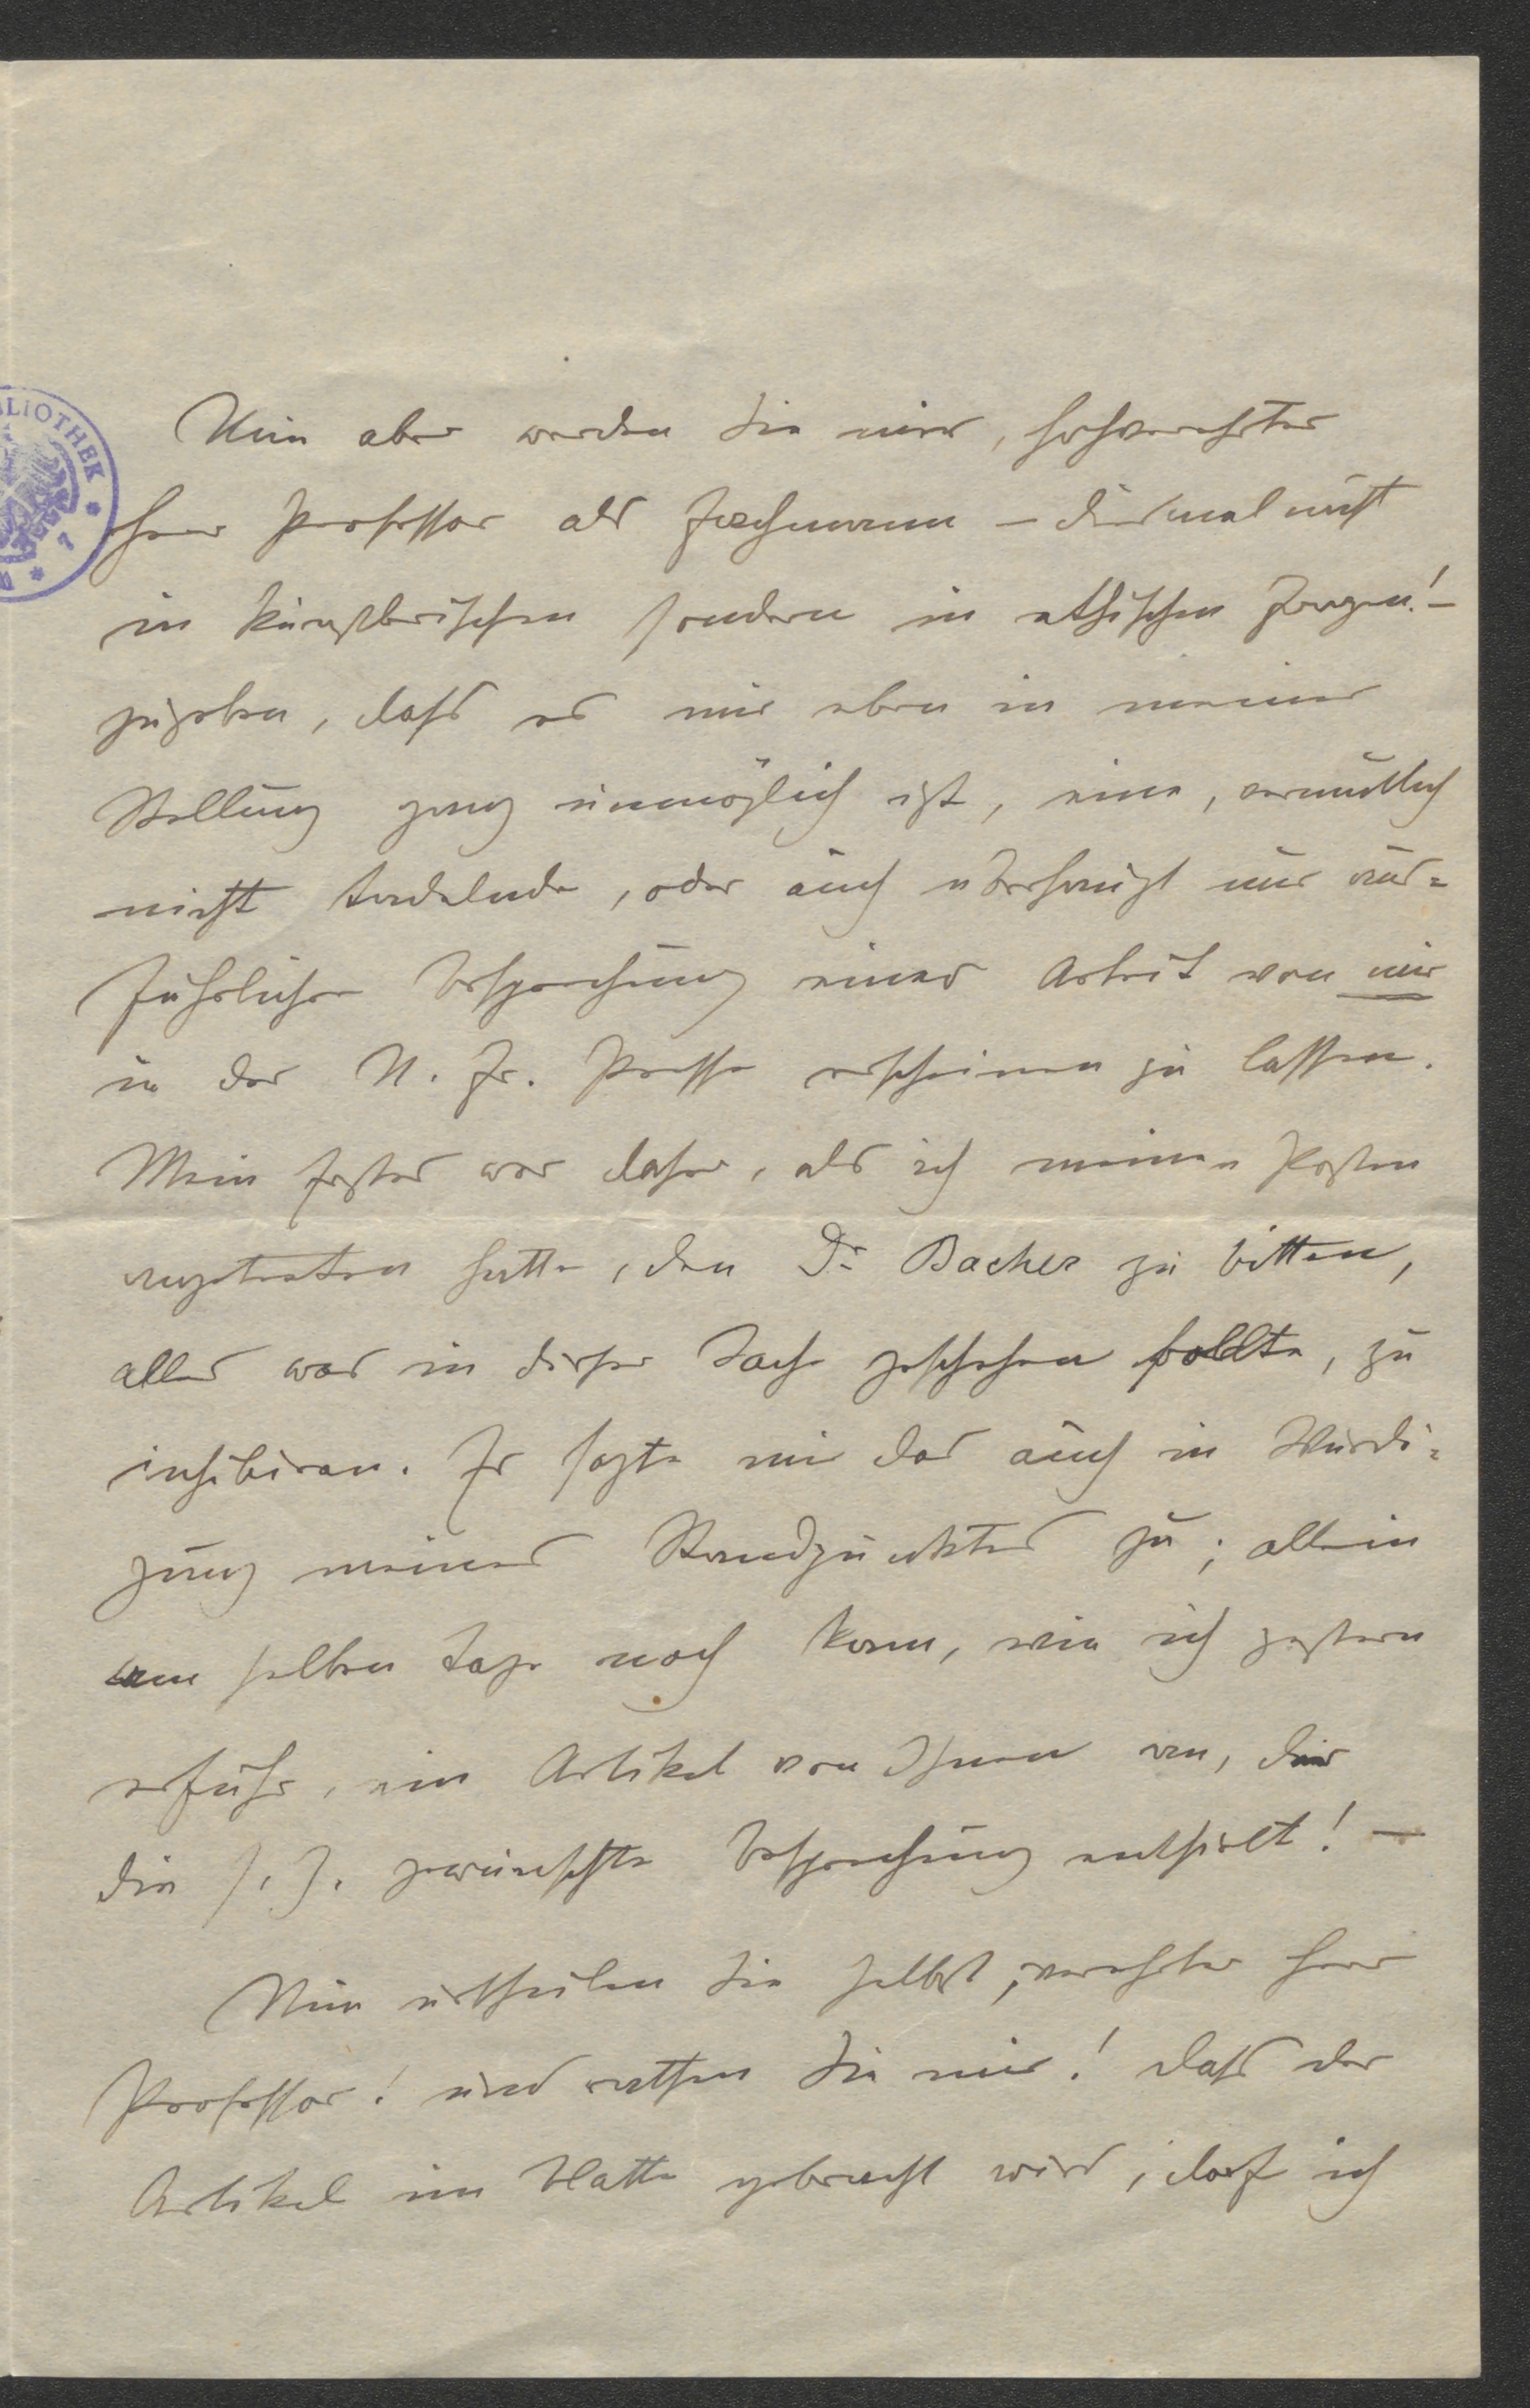 Nun aber werden Sie mir, hochverehrter
Herr Professor als Fachmann – diesmal nicht
in künstlerischen sondern in ethischen Fragen! –
zugeben, dass es mir eben in meiner
Stellung ganz unmöglich ist, eine, vermutlich
nicht tadelnde, oder auch überhaupt nur aus=
führliche Besprechung einer Arbeit von mir
in der N. Fr. Presse erscheinen zu lassen.
Mein Erstes war daher, als ich meinen Posten
angetreten hatte, den Dr Bacher zu bitten,
alles was in dieser Sache geschehen sollte, zu
inhibiren. Er sagte mir das auch in Würdi=
gung meines Standpunktes zu; allein
am selben Tage noch kam, wie ich gestern
erfuhr, ein Artikel von Ihnen an, der
die s. Z. gewünschte Besprechung enthielt! –
Nun urtheilen Sie selbst, verehrter Herr
Professor! und rathen Sie mir! dass der
Artikel im Blatte gebracht wird, darf ich
BIBLIOTHEK